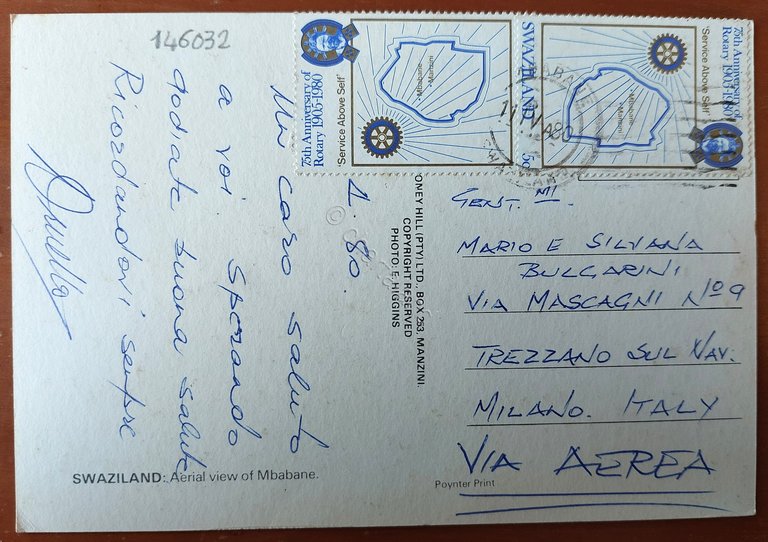 146032
1. 80.
Un caro saluto
a voi. Sperando
godiate buona salute
Ricordandovi sempre
SWAZILAND: Aerial view of Mbabane.
ONEY HILL (PTY) LTD., BOX 253, MANZINI.
COPYRIGHT RESERVED
PHOTO: F. HIGGINS
Poynter Print
75th Anniversary of
Rotary 1905-1980
'Service Above Self'
Mbabane
Manzini
SWAZILAND 5c
75th Anniversary of
Rotary 1905-1980
'Service Above Self'
Mbabane
Manzini
GENT. MI
MARIO E SILVANA
BULGARINI
VIA MASCAGNI Nº 9
TREZZANO SUL NAV.
MILANO. ITALY
VIA AEREA